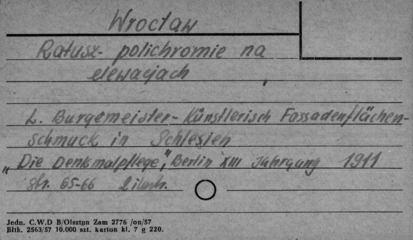 Wrocław
Ratusz- polichromie na
elewacjach
L. Burgemeister- Künstlerisch Fassadenflächen-
schmuck in Schlesien
"Die Denkmalpflege", Berlin XIII Jahrgang 1911
str. 65-66 2 ilustr.
Jedn. C.W.D B/Olsztyn Zam 2776 /on/57
Bltk. 2563/57 10.000 szt. karton kl. 7 g 220.